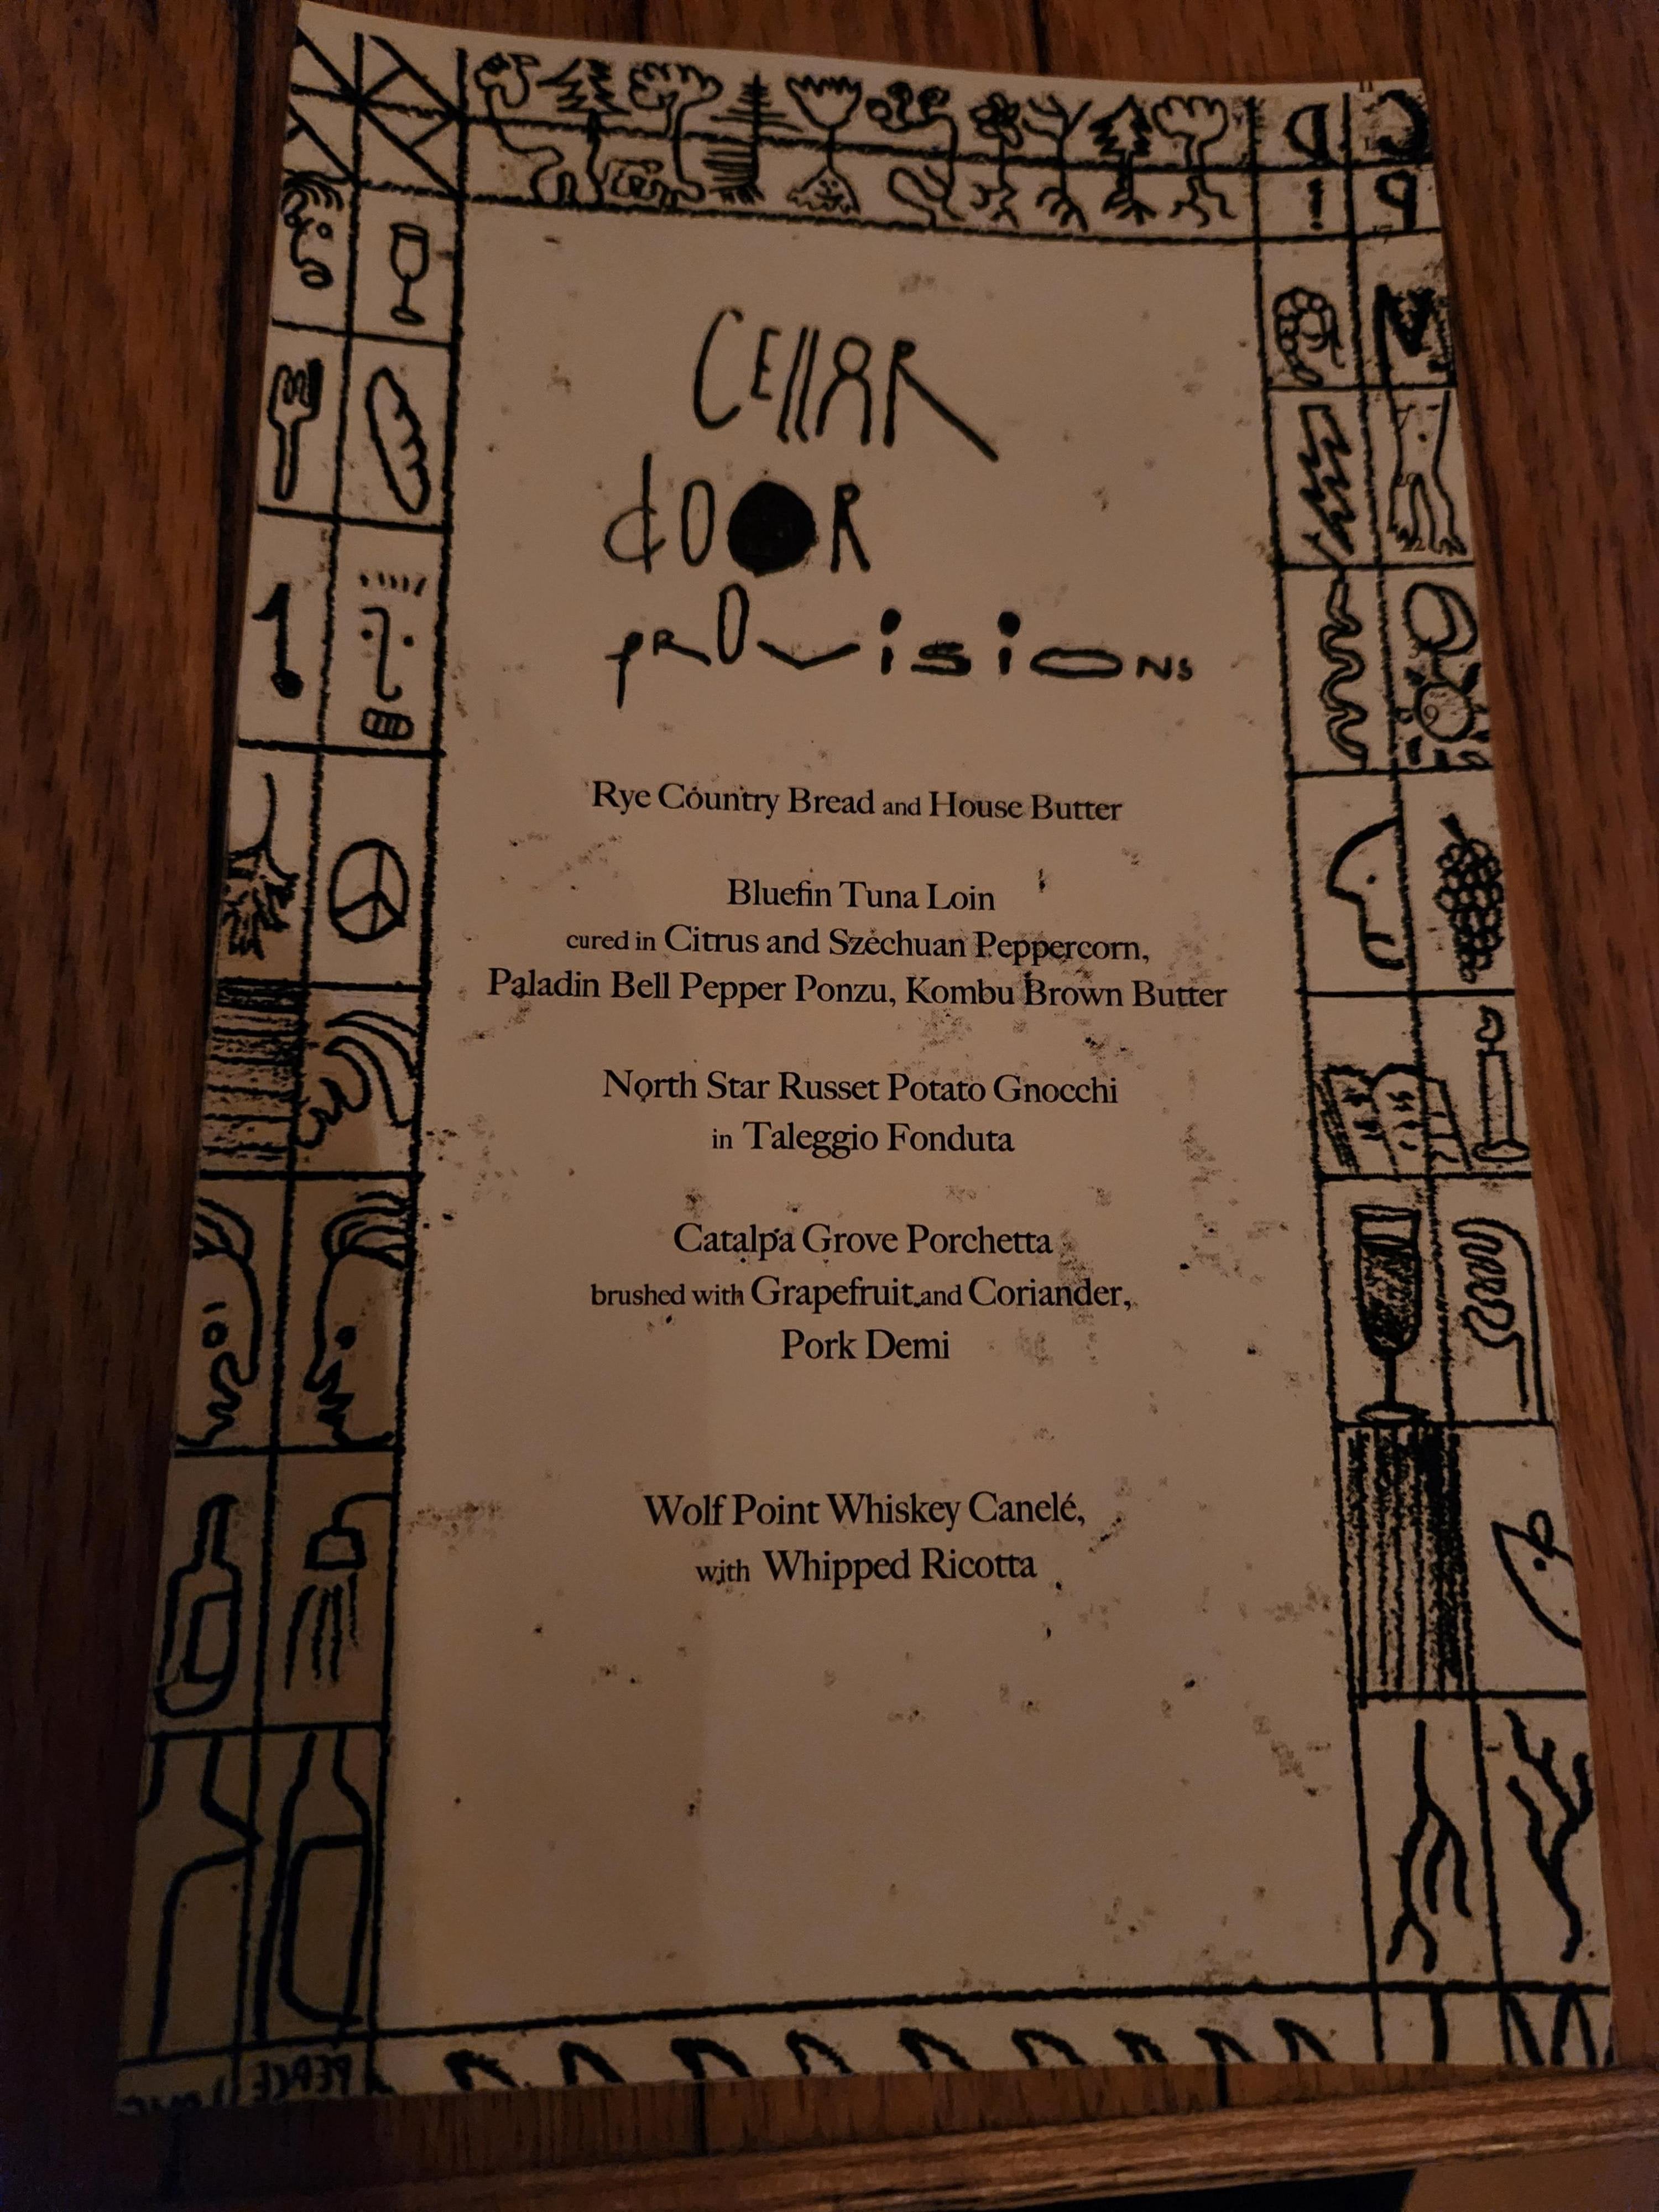 CEllAR
dOOR
pROvisiONs
Rye Country Bread and House Butter
Bluefin Tuna Loin
cured in Citrus and Szechuan Peppercorn,
Paladin Bell Pepper Ponzu, Kombu Brown Butter
North Star Russet Potato Gnocchi
in Taleggio Fonduta
Catalpa Grove Porchetta
brushed with Grapefruit and Coriander,
Pork Demi
Wolf Point Whiskey Canelé,
with Whipped Ricotta